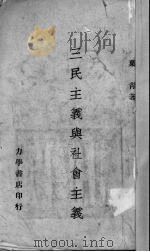 葉青著
三民主義與社會主義
力學書店印行